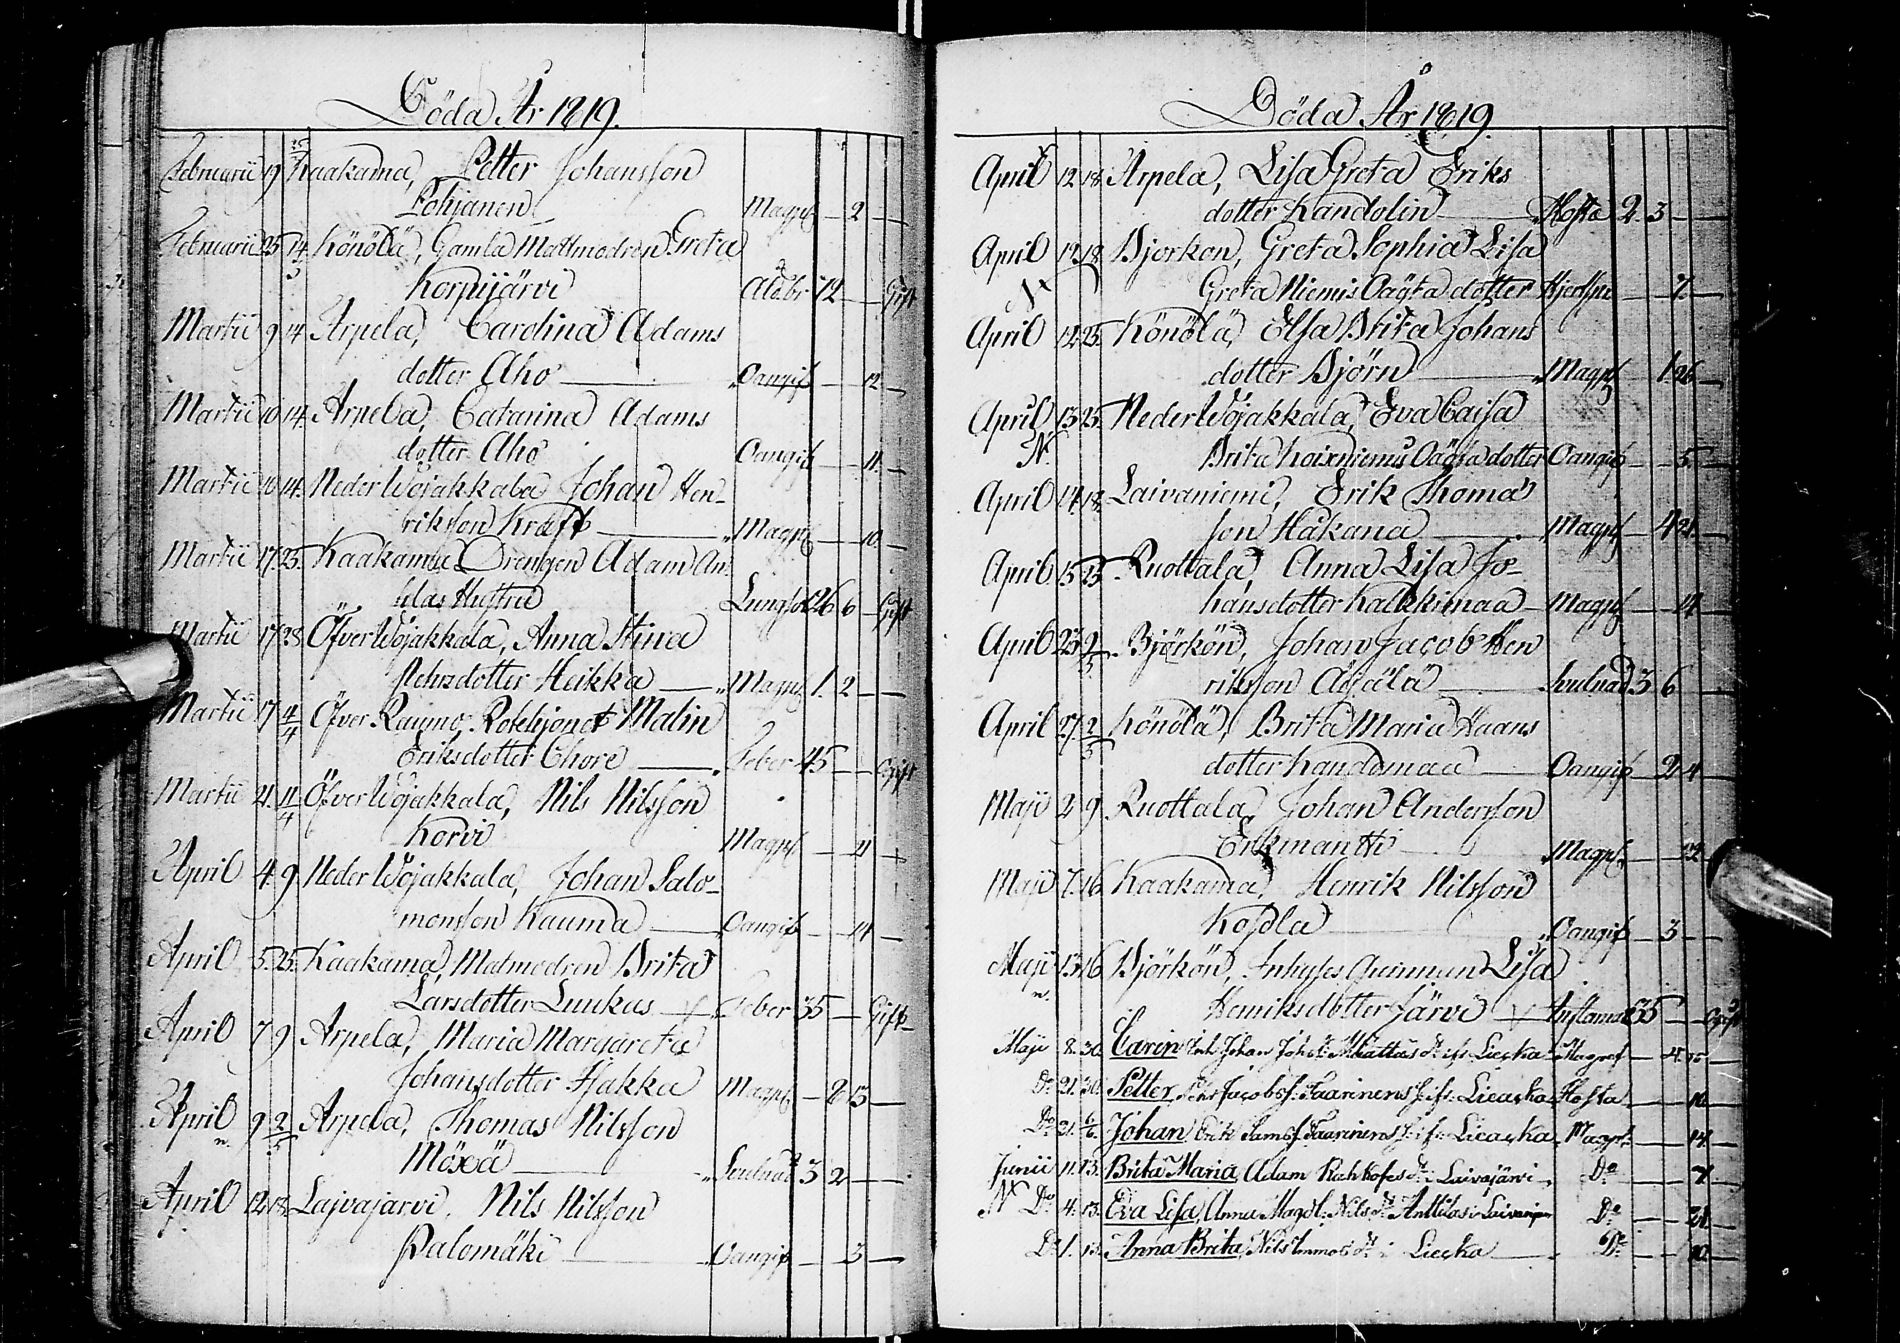 Döda År 1819.
Februarii 19 Kaakama, Petter Johansson
Pohjanen Magpl 2
Februarii 25 14/3 Könölä, Gamla Mattmodren Greta
Korpijärvi Åldbr 72 Gift
Martii 9 14 Arpela, Carolina Adams
dotter Aho Oangif 12
Martii 10 14 Arpela, Catarina Adams
dotter Aho Oangif 11
Martii 10 14 Neder Wojakkala Johan Hen-
riksson Kraft Magpl 10
Martii 17 25 Kaakama Drengen Adam An-
Hustru Lungsot 26 6 Gift
Martii 17 28 Öfver Wojakkala, Anna Stina
Pehrsdotter Heikka Magpl 1 2
Martii 17 4/4 Öfver Raumo Malin
Eriksdotter Chore Feber 45 Gift
Martii 21 11/4 Öfver Wojakkala, Nils Nilsson
Korvi Magpl 4
April 4 9 Neder Wojakkala, Johan Salo-
monsson Kauma Oangif 11
April 5 25 Kaakama, Matmodren Brita
Larsdotter Luukas Feber 35 Gift
April 7 9 Arpela, Maria Margareta
Johansdotter Hjakka Magpl 2 15
April 9 2/5 Arpela, Thomas Nilsson
Möxä 3 2
April 12 18 Lajvajarvi, Nils Nilsson
Palomäki Oangif 3
Döda År 1819
April 12 18 Arpela, Lisa Greta Eriks
dotter Kandolin Hosta 2 3
April 12 18 Bjorkon, Greta Sophia Lisa
Greta Niemis Oägta dotter 7
April 12 25 Könölä, Elsa Brita Johans
dotter Björn Magpl 1 26
April 13 25 Neder Wojakkala, Eva Caisa
N. Brita Koivuniemis Oägta dotter Oangif 5
April 14 18 Laivaniemi, Erik Thomas
son Hakana Magpl 4 21
April 15 25 Ruottala, Anna Lisa Jo-
hansdotter Kalkkimaa Magpl 14
April 23 2/5 Björkön, Johan Jacob Hen
riksson 3 6
April 27 2/5 Könölä, Brita Maria Haans
dotter Kandomaa Oangif 2 4
Maji 2 9 Ruottala, Johan Andersson
Erkmantti Magpl 22
Maji 7 16 Kaakama, Henrik Nilsson
Koskla Oangif 3
Maji 13 16 Björkön, Inhyses Quinnan Lisa
Henriksdotter Järvi 55 Gift
Maji 8 30 Carin Johan Johs Mattas Liecka Magpl
Do 21 30 Petter Jacobs. Saarinens Liecka Hosta 10
Do 21 6/6 Johan Erik Sams. Saarinens Liecka Magpl 14
Junii 11 13 Brita Maria, Adam Laivajärvi Do 7
N Do 4 13 Eva Lisa, Anna Magdl. Nils dr Anttilas Laivaniemi Do 21
Do 1 13 Anna Brita, Nils dr i Liecka Do 10